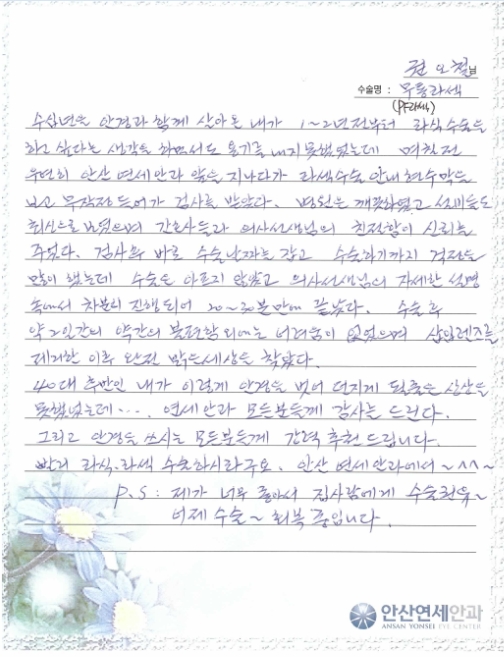 권오철님
수술명 : 무통라섹
(PF라섹)
수십년을 안경과 함께 살아온 내가 1~2년전부터 라식수술을
하고 싶다는 생각을 하면서도 용기를 내지 못했었는데 며칠전
우연히 안산 연세안과 앞을 지나다가 라섹수술 안내 현수막을
보고 무작정 들어가 검사를 받았다. 병원은 깨끗하였고 시설들도
최신으로 보였으며 간호사들과 의사선생님의 친절함이 신뢰를
주었다. 검사후 바로 수술날짜를 잡고 수술하기까지 걱정을
많이 했는데 수술은 아프지 않았고 의사선생님의 자세한 설명
속에서 차분히 진행되어 20~30분만에 끝났다. 수술 후
약 2일간의 약간의 불편함 외에는 어려움이 없었으며 삽입렌즈를
제거한 이후 완전 밝은세상을 찾았다.
40대 후반인 내가 이렇게 안경을 벗어 던지게 될줄은 상상을
못했었는데.... 연세안과 모든분들께 감사를 드린다.
그리고 안경을 쓰시는 모든분들께 강력 추천 드립니다.
빨리 라식.라섹 수술하시라구요. 안산 연세안과에서 ~^^~
P.S : 제가 너무 좋아서 집사람에게 수술권유~
어제 수술~ 회복 중입니다.
안산연세안과
ANSAN YONSEI EYE CENTER